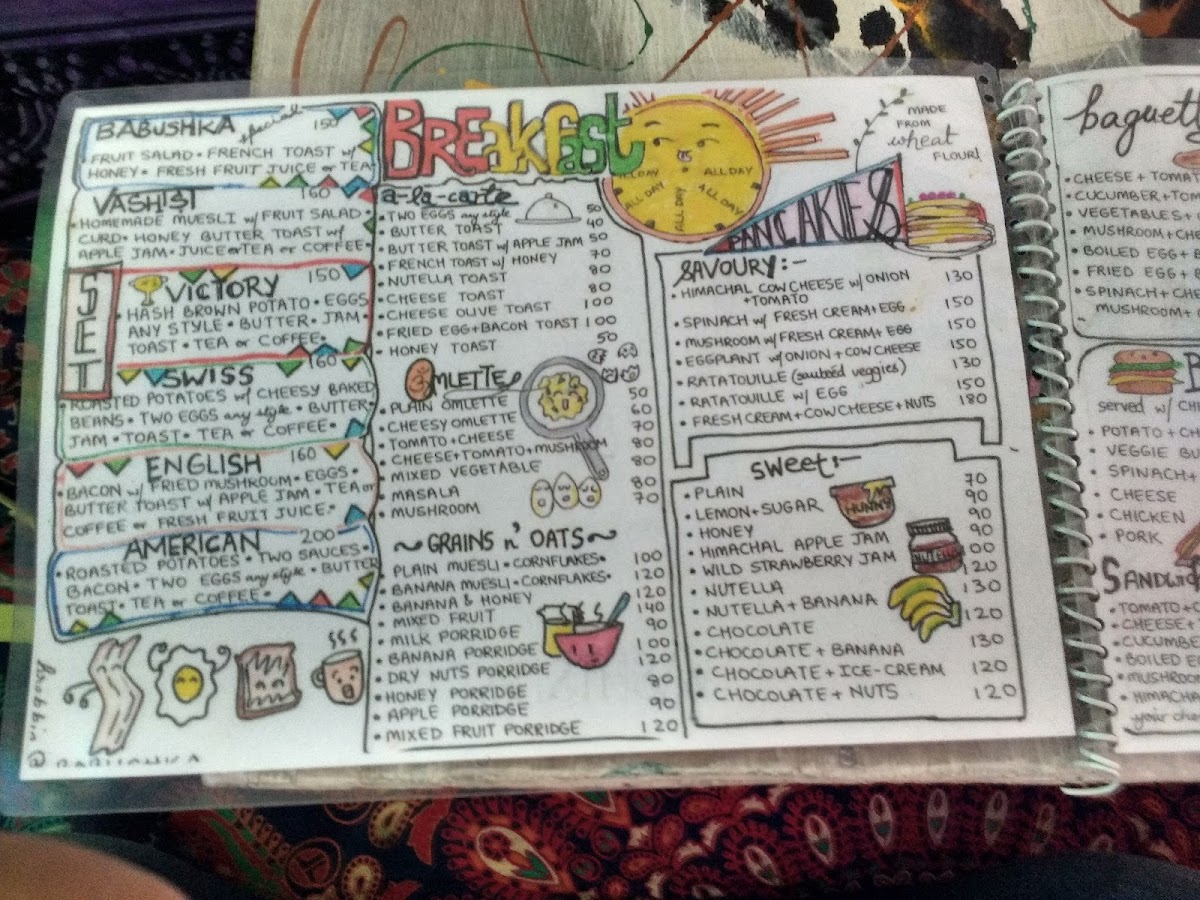 BREAKFAST
BABUSHKA special 150
FRUIT SALAD • FRENCH TOAST w/
HONEY • FRESH FRUIT JUICE or TEA
SET
VASHIST 160
HOMEMADE MUESLI w/ FRUIT SALAD •
CURD • HONEY BUTTER TOAST w/
APPLE JAM • JUICE or TEA or COFFEE •
VICTORY 150
• HASH BROWN POTATO • EGGS
ANY STYLE • BUTTER • JAM •
TOAST • TEA or COFFEE •
SWISS 160
ROASTED POTATOES w/ CHEESY BAKED
BEANS • TWO EGGS any style • BUTTER •
JAM • TOAST • TEA or COFFEE •
ENGLISH 160
• BACON w/ FRIED MUSHROOM • EGGS •
BUTTER TOAST w/ APPLE JAM • TEA or
COFFEE or FRESH FRUIT JUICE •
AMERICAN 200
• ROASTED POTATOES • TWO SAUCES •
BACON • TWO EGGS any style • BUTTER
TOAST • TEA or COFFEE •
a-la-carte
• TWO EGGS any style 50
• BUTTER TOAST 40
• BUTTER TOAST w/ APPLE JAM 50
• FRENCH TOAST w/ HONEY 70
• NUTELLA TOAST 80
• CHEESE TOAST 80
• CHEESE OLIVE TOAST 100
• FRIED EGG + BACON TOAST 100
• HONEY TOAST 50
OMLETTE
• PLAIN OMLETTE 50
• CHEESY OMLETTE 60
• TOMATO + CHEESE 70
• CHEESE + TOMATO + MUSHROOM 80
• MIXED VEGETABLE 80
• MASALA 80
• MUSHROOM 70
~ GRAINS n' OATS ~
• PLAIN MUESLI • CORNFLAKES • 100
• BANANA MUESLI • CORNFLAKES • 120
• BANANA & HONEY 120
• MIXED FRUIT 140
• MILK PORRIDGE 90
• BANANA PORRIDGE 100
• DRY NUTS PORRIDGE 120
• HONEY PORRIDGE 80
• APPLE PORRIDGE 90
• MIXED FRUIT PORRIDGE 120
ALL DAY
ALL DAY
ALL DAY
ALL DAY
ALL DAY
MADE
FROM
wheat
FLOUR!
PANCAKES
SAVOURY:-
• HIMACHAL COW CHEESE w/ ONION 130
+ TOMATO
• SPINACH w/ FRESH CREAM + EGG 150
• MUSHROOM w/ FRESH CREAM + EGG 150
• EGGPLANT w/ ONION + COW CHEESE 150
• RATATOUILLE (sautéed veggies) 130
• RATATOUILLE w/ EGG 150
• FRESH CREAM + COW CHEESE + NUTS 180
SWEET:-
• PLAIN 70
• LEMON + SUGAR 90
• HONEY 90
• HIMACHAL APPLE JAM 90
• WILD STRAWBERRY JAM 100
• NUTELLA 120
• NUTELLA + BANANA 130
• CHOCOLATE 120
• CHOCOLATE + BANANA 130
• CHOCOLATE + ICE-CREAM 120
• CHOCOLATE + NUTS 120
HUNNY
NUTELLA
@ BABUSHKA
baguett
• CHEESE + TOMAT
• CUCUMBER + TOM
• VEGETABLES +
• MUSHROOM + CHE
• BOILED EGG + B
• FRIED EGG + B
• SPINACH + CHE
MUSHROOM +
B
served w/ CH
• POTATO + CH
• VEGGIE BU
• SPINACH +
• CHEESE
• CHICKEN
• PORK
SANDWI
• TOMATO + C
• CHEESE +
• CUCUMBE
• BOILED E
• MUSHROO
• HIMACHA
your cho